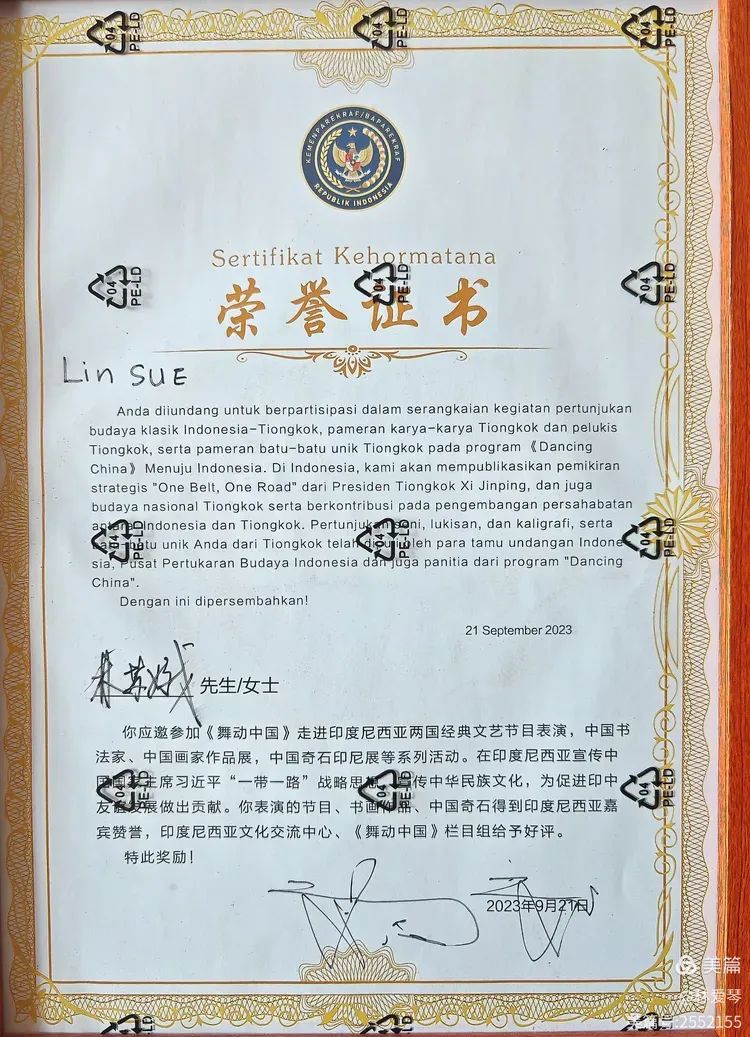 04 PE-LD
04 PE-LD
04 PE-LD
KEMENPAREKRAF/BAPAREKRAF
REPUBLIK INDONESIA
Sertifikat Kehormatana
04 PE-LD
04 PE-LD
04 PE-LD
荣誉证书
Lin SUE
Anda diiundang untuk berpartisipasi dalam serangkaian kegiatan pertunjukan
budaya klasik Indonesia-Tiongkok, pameran karya-karya Tiongkok dan pelukis
Tiongkok, serta pameran batu-batu unik Tiongkok pada program 《Dancing
China》 Menuju Indonesia. Di Indonesia, kami akan mempublikasikan pemikiran
strategis "One Belt, One Road" dari Presiden Tiongkok Xi Jinping, dan juga
budaya nasional Tiongkok serta berkontribusi pada pengembangan persahabatan
antara Indonesia dan Tiongkok. Pertunjukan seni, lukisan, dan kaligrafi, serta
04 PE-LD
04 PE-LD
04 PE-LD
batu-batu unik Anda dari Tiongkok telah dipuji oleh para tamu undangan Indone-
sia, Pusat Pertukaran Budaya Indonesia dan juga panitia dari program "Dancing
China".
Dengan ini dipersembahkan!
21 September 2023
先生/女士
你应邀参加《舞动中国》走进印度尼西亚两国经典文艺节目表演，中国书
法家、中国画家作品展，中国奇石印尼展等系列活动。在印度尼西亚宣传中
国国家主席习近平“一带一路”战略思想，宣传中华民族文化，为促进印中
04 PE-LD
04 PE-LD
04 PE-LD
友谊发展做出贡献。你表演的节目、书画作品、中国奇石得到印度尼西亚嘉
宾赞誉，印度尼西亚文化交流中心、《舞动中国》栏目组给予好评。
特此奖励！
2023年9月21日
美篇
爱琴
2552155